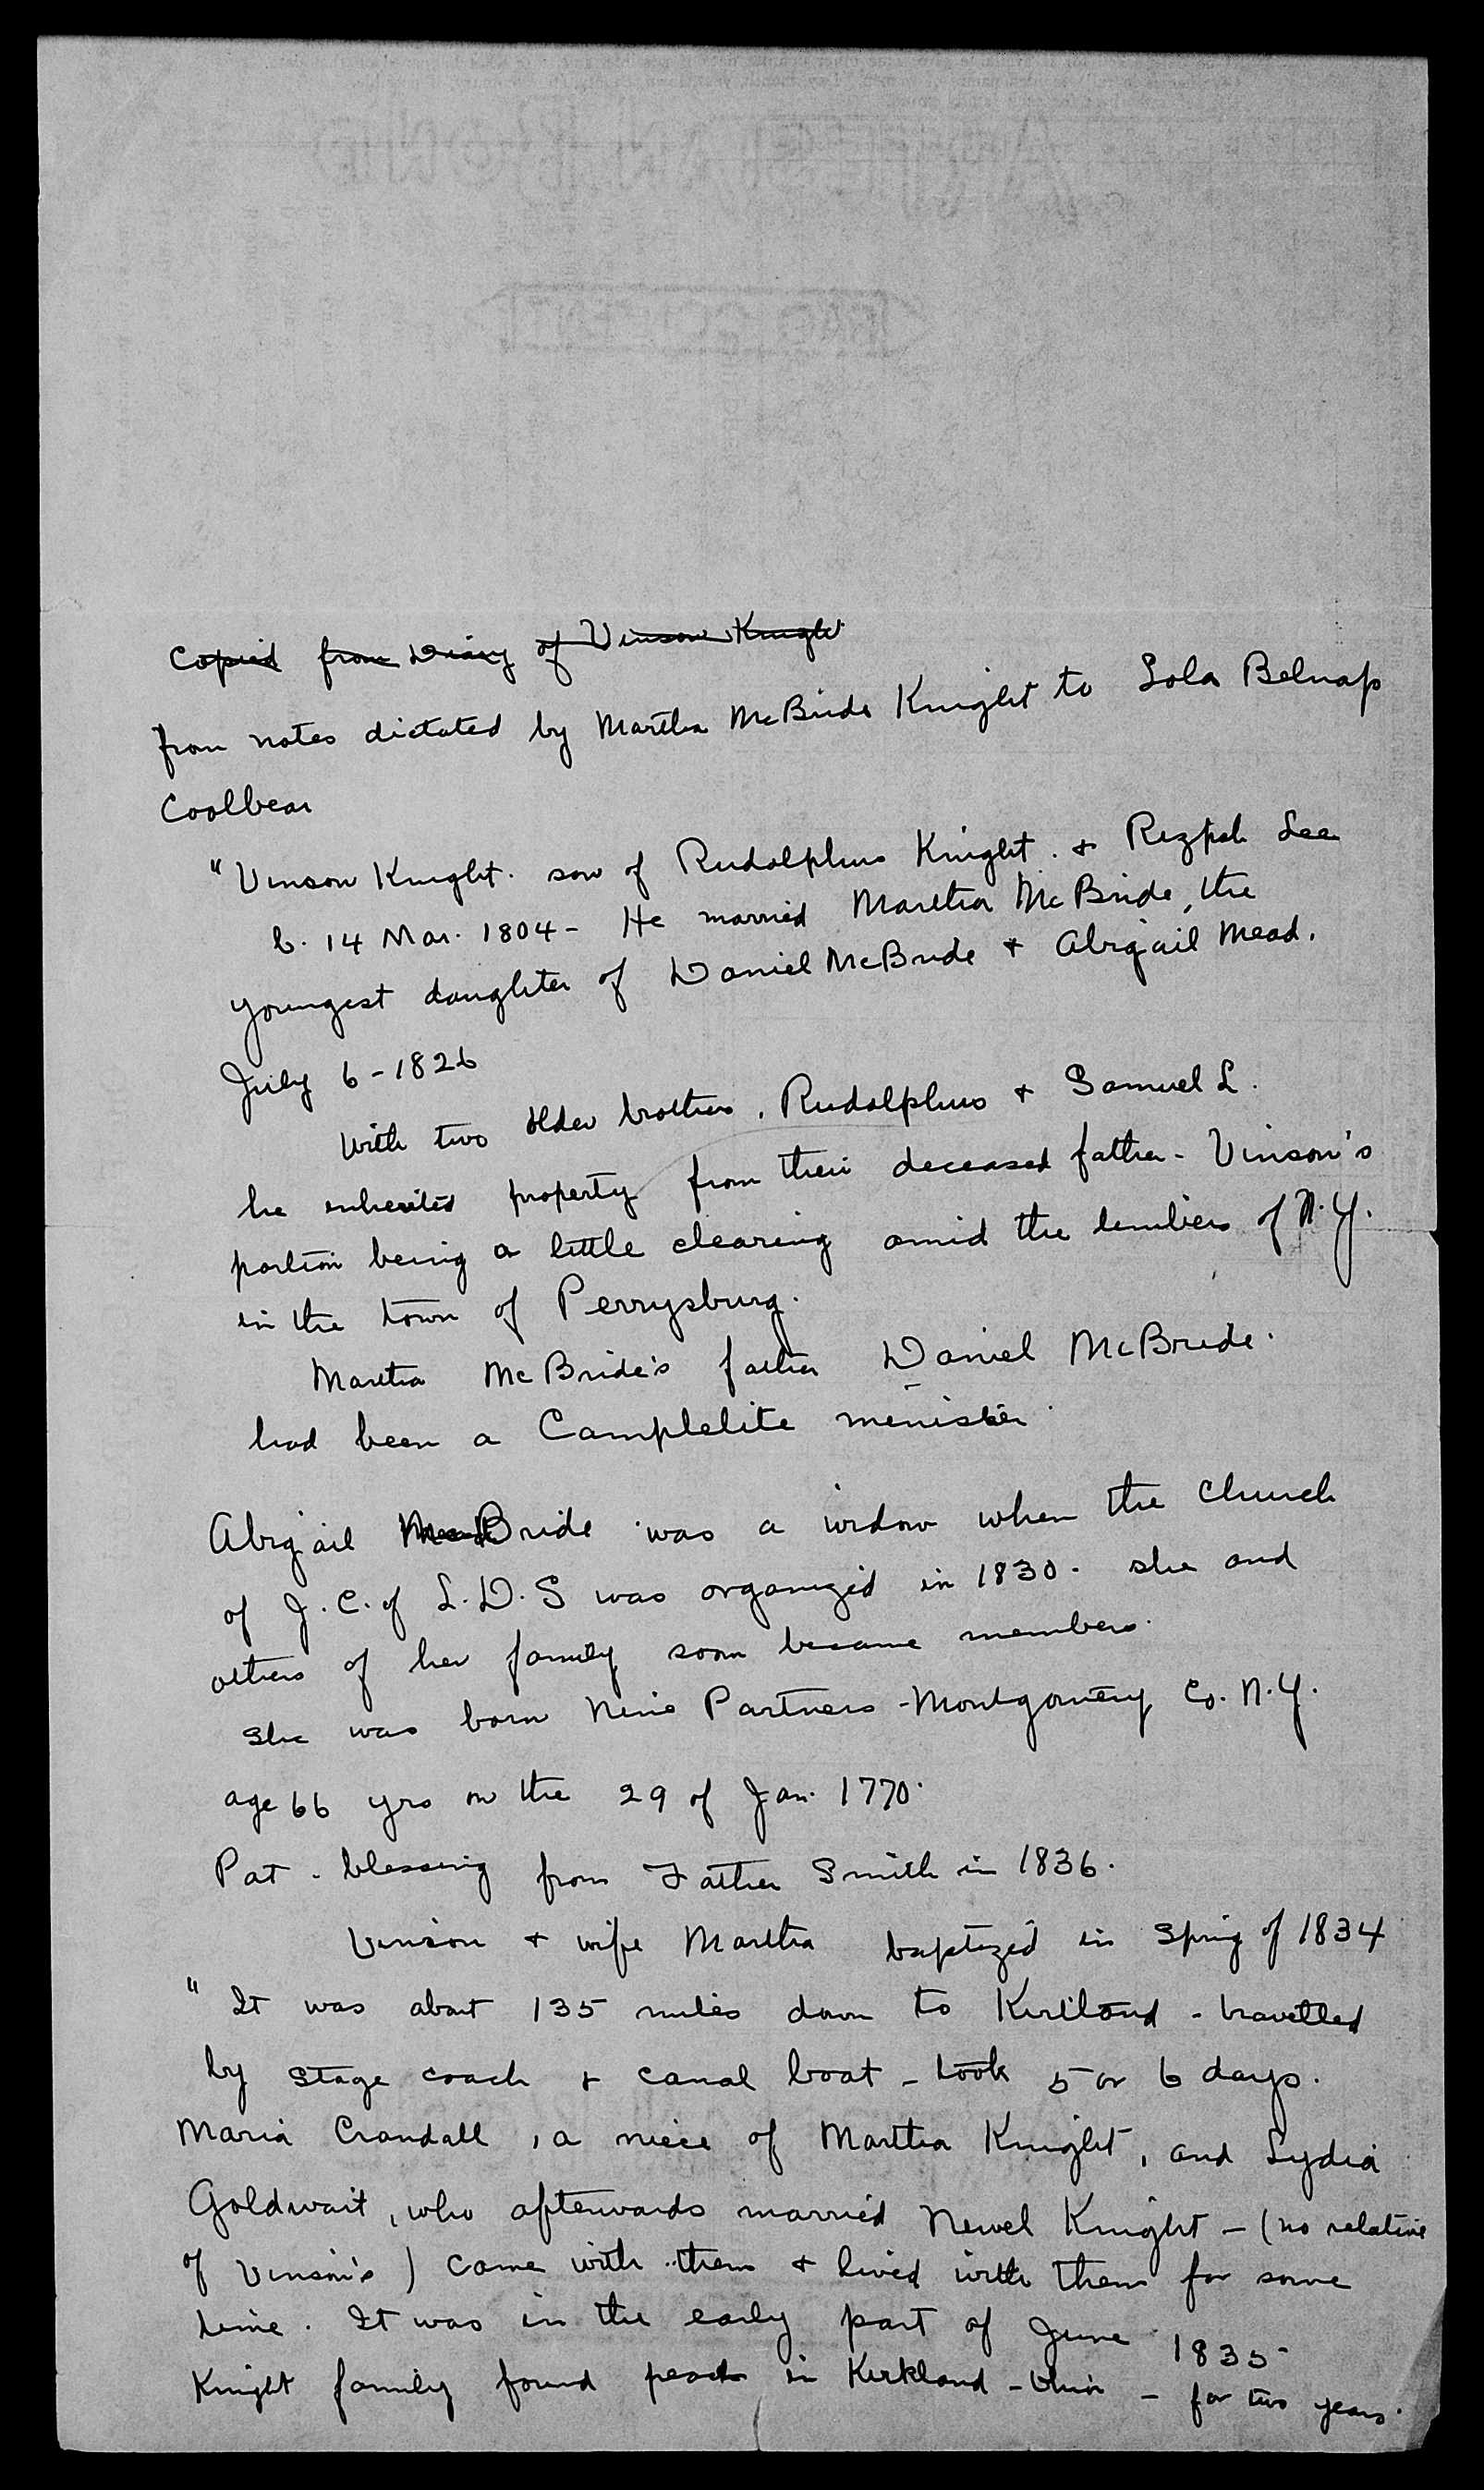 Copied from Diary of Vinson Knight
from notes dictated by Martha McBride Knight to Lola Belnap
Coolbear
"Vinson Knight. son of Rudolphus Knight. & Rizpah Lee
b. 14 Mar. 1804 - He married Martha McBride, the
youngest daughter of Daniel McBride & Abigail Mead.
July 6 - 1826
With two older brothers, Rudolphus & Samuel L.
he inherited property from their deceased father - Vinson's
portion being a little clearing amid the timbers of N.Y.
in the town of Perrysburg.
Martha McBride's father Daniel McBride.
had been a Camplelite minister.
Abigail McBride was a widow when the Church
of J.C. of L.D.S was organized in 1830. she and
others of her family soon became members.
She was born Nine Partners - Montgomery Co. N.Y.
age 66 yrs on the 29 of Jan. 1770.
Pat. blessing from Father Smith in 1836.
Vinson & wife Martha baptized in Spring of 1834
"It was about 135 miles down to Kirtland - travelled
by stage coach & canal boat - took 5 or 6 days.
Maria Crandall, a niece of Martha Knight, and Lydia
Goldwait, who afterwards married Newel Knight - (no relative
of Vinson's) came with them & lived with them for some
time. It was in the early part of June 1835
Knight family found peace in Kirkland - Ohio - for two years.